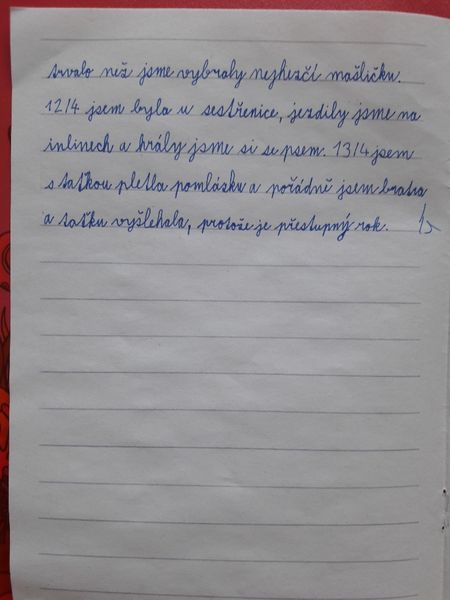 trvalo než jsme vybraly nejhezčí mašličku.
12/4 jsem byla u sestřenice, jezdily jsme na
inlinech a hrály jsme si se psem. 13/4 jsem
s taťkou pletla pomlásku a pořádně jsem bratra
a taťku vyšlehala, protože je přestupný rok.